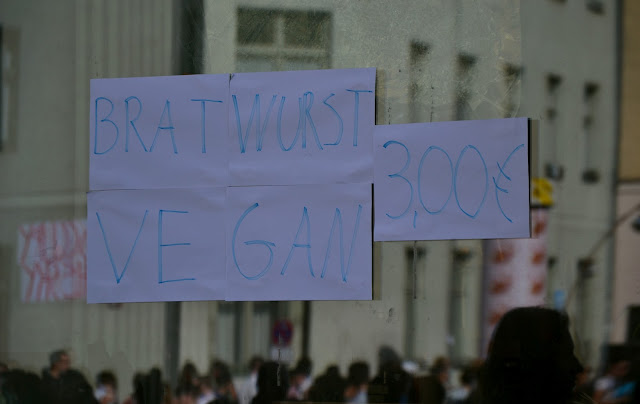 BRATWURST
VEGAN
3,00€